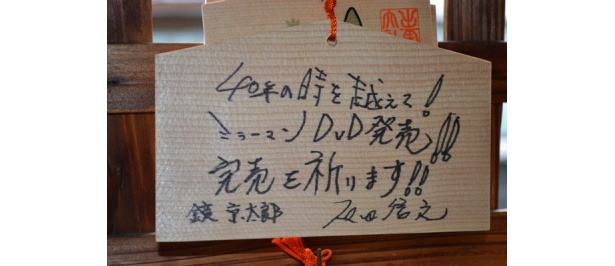 40年の時を越えて!
ミラーマンDVD発売!!
完売を祈ります!!
鏡 京太郎 石田信之